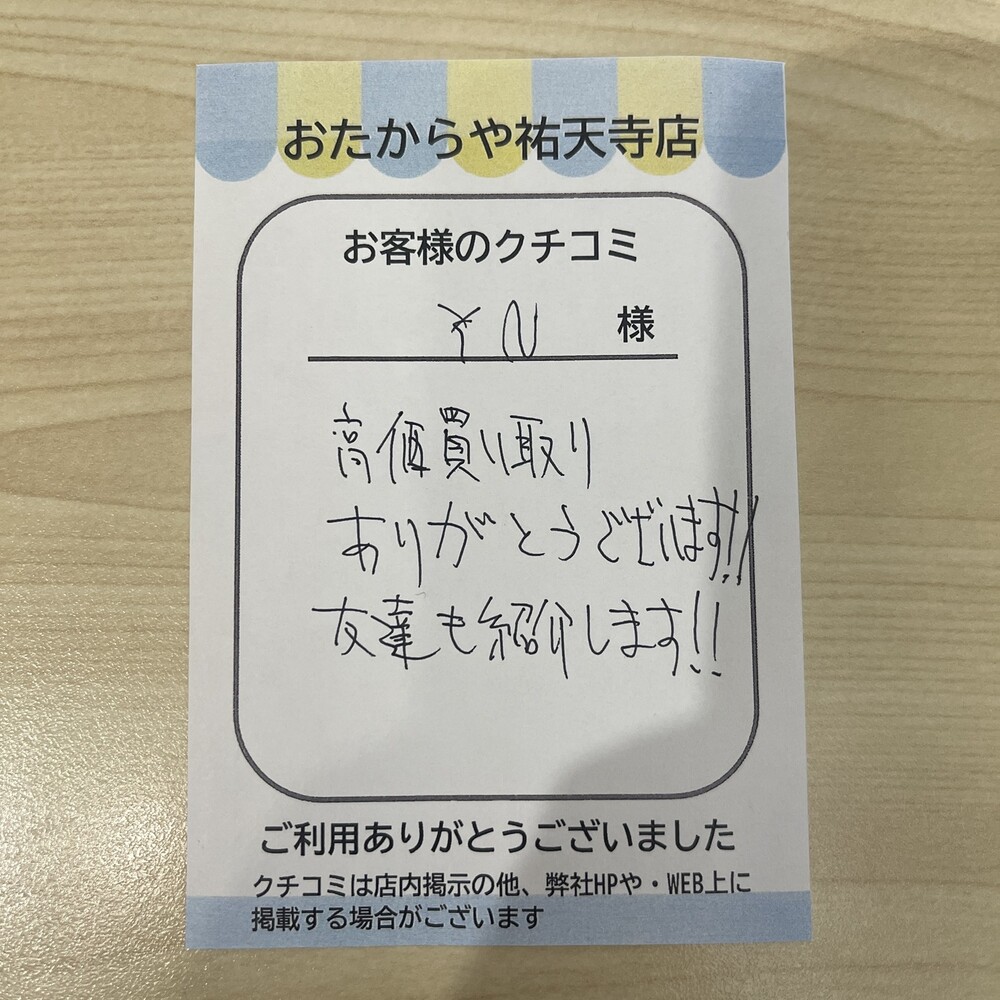 おたからや祐天寺店
お客様のクチコミ
YN 様
高価買い取り
ありがとうございます!!
友達も紹介します!!
ご利用ありがとうございました
クチコミは店内掲示の他、弊社HPや・WEB上に
掲載する場合がございます